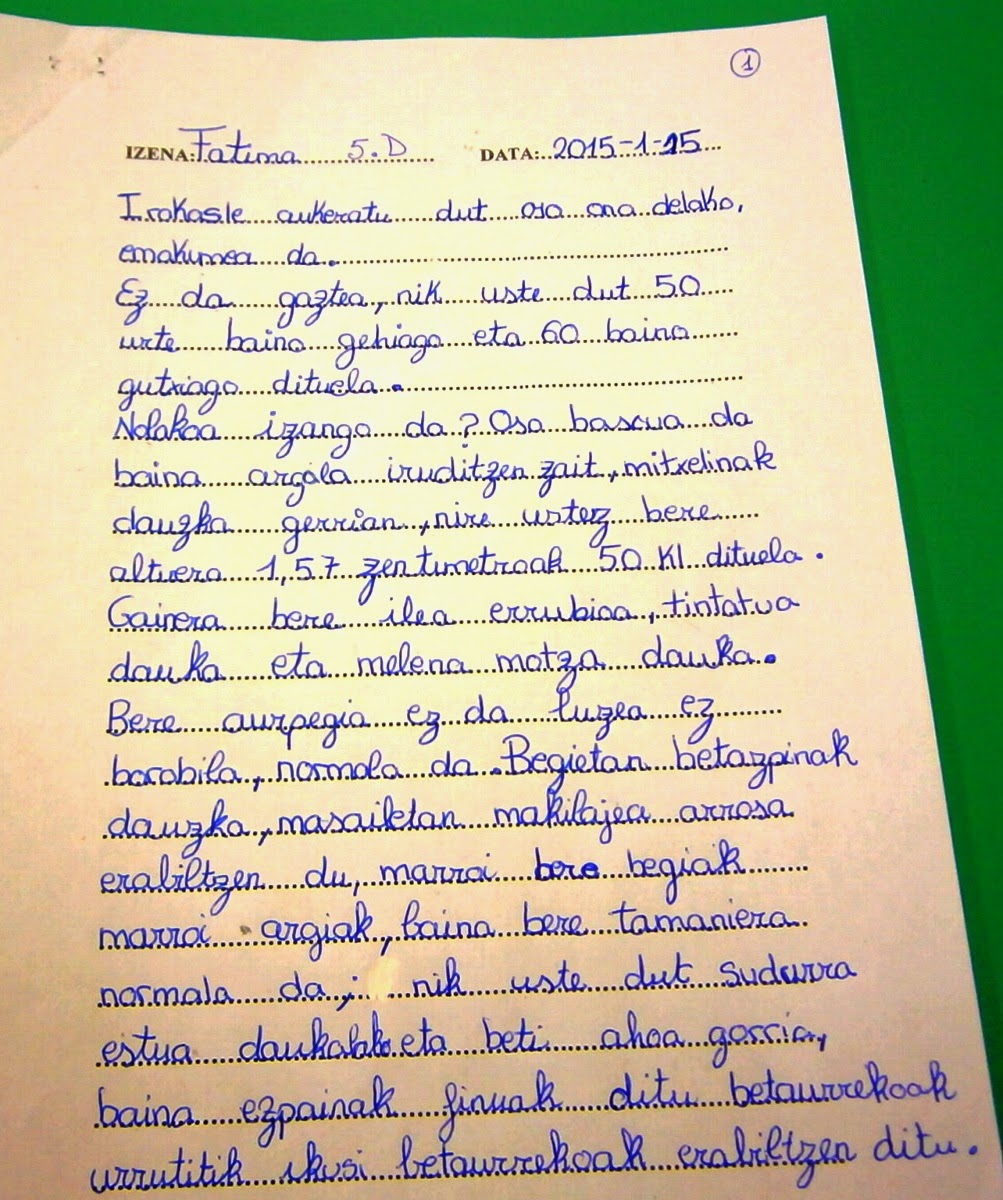 1
IZENA: Fatima 5.D DATA: 2015-1-25
Irakasle aukeratu dut oso ona delako,
emakumea da.
Ez da gaztea, nik uste dut 50
urte baino gehiago eta 60 baino
gutxiago dituela.
Nolakoa izango da? Oso bascua da
baina argala iruditzen zait, mitxelinak
dauzka gerrian, nire ustez bere
altuera 1,57 zentimetroak 50 Kl dituela.
Gainera bere ilea errubioa, tintatua
dauka eta melena motza dauka.
Bere aurpegia ez da luzea ez
borobila, normala da. Begietan betazpinak
dauzka, masailetan makilajea arrosa
erabiltzen du, marroi bere begiak
marroi argiak, baina bere tamaniera
normala da; nik uste dut sudurra
estua daukalako eta beti ahoa gorria,
baina ezpainak finuak ditu betaurrekoak
urrutitik ikusi betaurrekoak erabiltzen ditu.